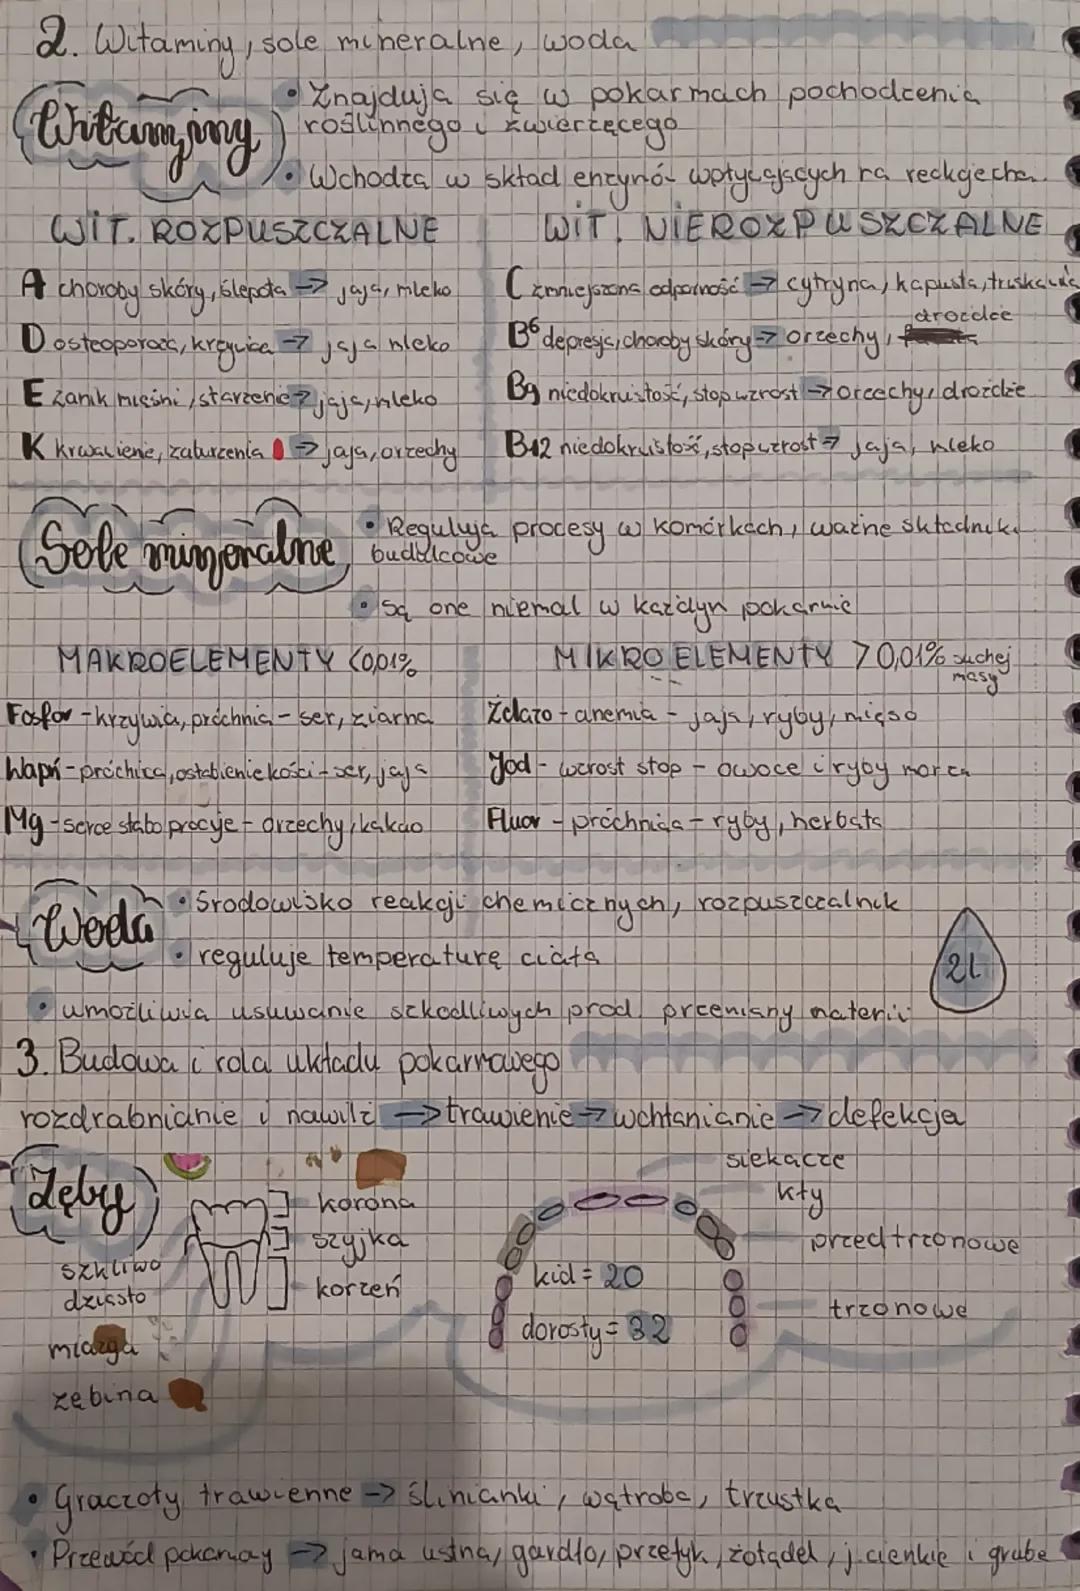 2. Witaminy, sole mineralne, woda
Witaminy
• Znajdują się w pokarmach pochodzenia
roślinnego i zwierzęcego
• Wchodzą w skład enzymów wpływających na reakcje chem.
WIT. ROZPUSZCZALNE
WIT. NIEROZPUSZCZALNE
A choroby skóry, ślepota → jaja, mleko
C zmniejszona odporność → cytryna, kapusta, truskawka
D osteoporoza, krzywica → jaja mleko
drożdże
B6 depresja, choroby skóry → orzechy,
E zanik mięśni, starzenie → jaja, mleko
B9 niedokrwistość, stop wzrost → orzechy, drożdże
K krwawienie, zaburzenia → jaja, orzechy
B12 niedokrwistość, stop wzrost → jaja, mleko
Sole mineralne
• Regulują procesy w komórkach, ważne składniki
budulcowe
• Są one niemal w każdym pokarmie
MAKROELEMENTY <0,01%
MIKROELEMENTY >0,01% suchej
masy
Fosfor - krzywia, próchnia - ser, ziarna
Żelazo - anemia - jaja, ryby, mięso
Wapń - próchica, osłabienie kości - ser, jaja
Jod - wzrost stop - owoce i ryby morza
Mg - serce słabo pracuje - orzechy, kakao
Fluor - próchnica - ryby, herbata
Woda
• Środowisko reakcji chemicznych, rozpuszczalnik
• reguluje temperaturę ciała
2l
• umożliwia usuwanie szkodliwych prod. przemiany materii
3. Budowa i rola układu pokarmowego
rozdrabnianie i nawilż → trawienie → wchłanianie → defekcja
Zęby
siekacze
korona
kły
szyjka
przedtrzonowe
szkliwo
kid = 20
korzeń
dziąsło
trzonowe
dorosły = 32
miazga
zębina
• Graczoły trawienne → ślinianki, wątroba, trzustka
• Przewód pokarmowy → jama ustna, gardło, przełyk, żołądek, j. cienkie i grube